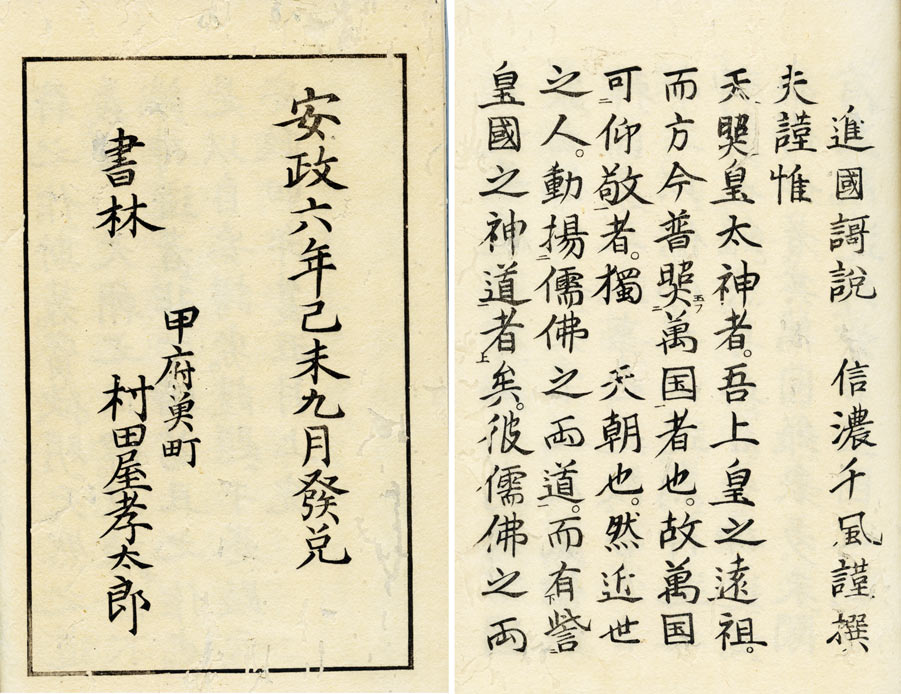 進國謌說 信濃千風謹撰
夫謹惟
天照皇太神者。吾上皇之遠祖。
而方今普照萬国者也。故萬国
可仰敬者。獨 天朝也。然近世
之人。動揚儒佛之両道。而有訾
皇國之神道者矣。彼儒佛之両
安政六年己未九月發兌
甲府魚町
書林 村田屋孝太郎